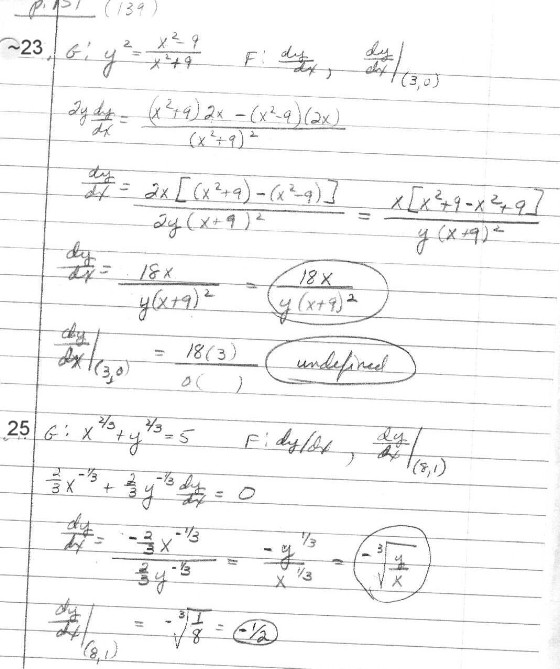 p.151 (139)
~23. G: y² = (x²-9)/(x²+9) F: dy/dx, dy/dx|(3,0)
2y dy/dx = ((x²+9)2x - (x²-9)(2x))/(x²+9)²
dy/dx = 2x[(x²+9)-(x²-9)]/2y(x+9)² = x[x²+9-x²+9]/y(x+9)²
dy/dx = 18x/y(x+9)² = 18x/y(x+9)²
dy/dx|(3,0) = 18(3)/0( ) undefined
25 G: x^2/3 + y^2/3 = 5 F: dy/dx, dy/dx|(8,1)
2/3 x^-1/3 + 2/3 y^-1/3 dy/dx = 0
dy/dx = (-2/3 x^-1/3)/(2/3 y^-1/3) = -y^1/3/x^1/3 = -∛(y/x)
dy/dx|(8,1) = -∛(1/8) = -1/2